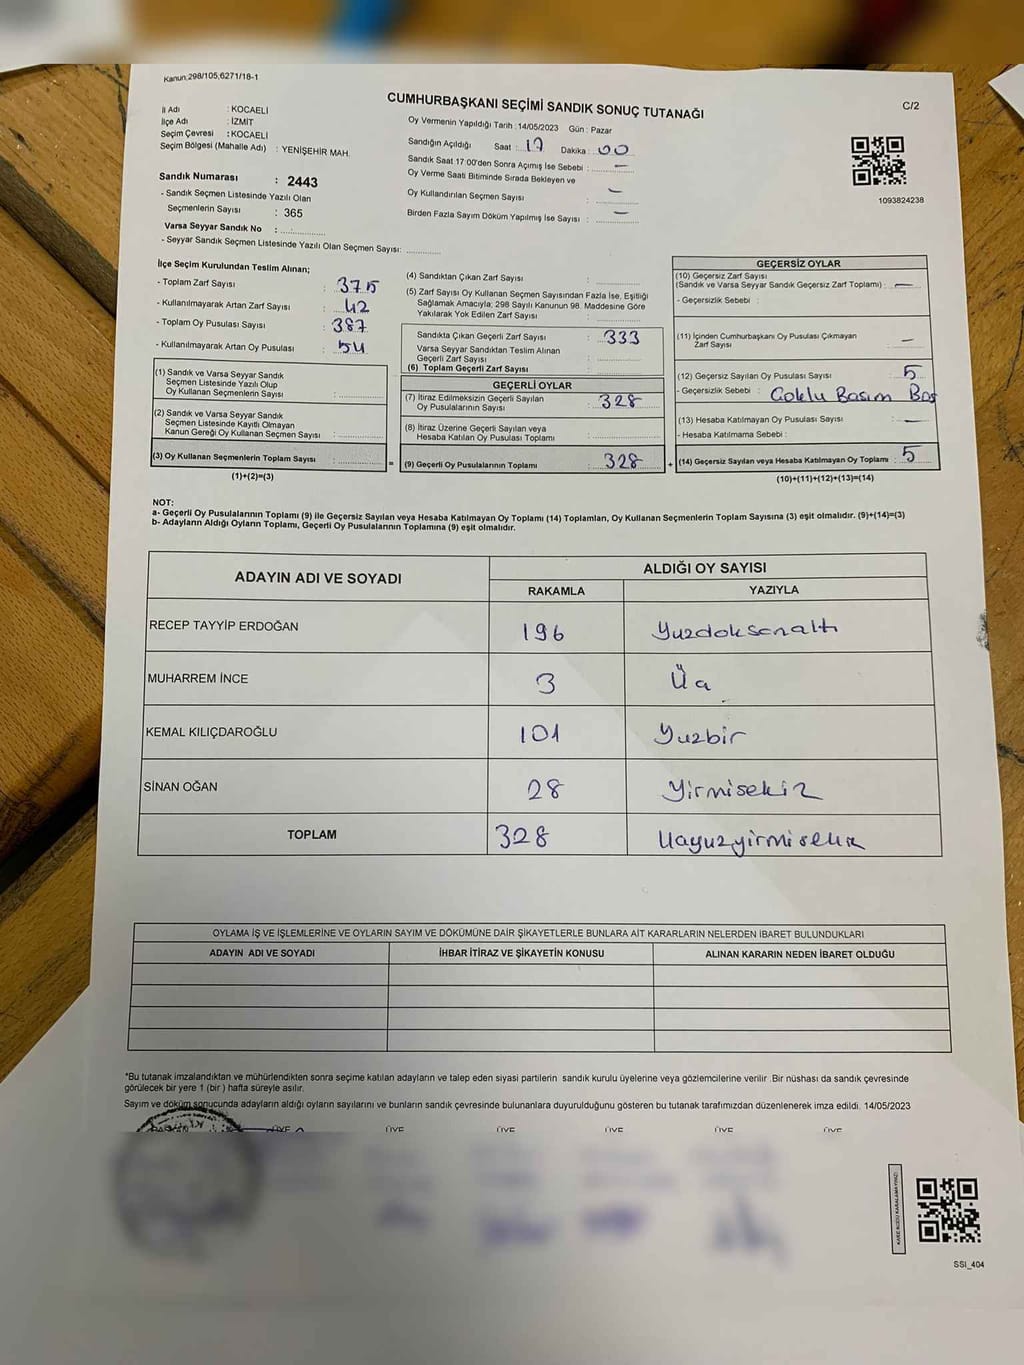 Kanun:298/105,6271/18-1
CUMHURBAŞKANI SEÇİMİ SANDIK SONUÇ TUTANAĞI
C/2
İl Adı : KOCAELİ
İlçe Adı : İZMİT
Seçim Çevresi : KOCAELİ
Seçim Bölgesi (Mahalle Adı) : YENİŞEHİR MAH.
Sandık Numarası : 2443
- Sandık Seçmen Listesinde Yazılı Olan
Seçmenlerin Sayısı : 365
Varsa Seyyar Sandık No :
- Seyyar Sandık Seçmen Listesinde Yazılı Olan Seçmen Sayısı:
Oy Vermenin Yapıldığı Tarih : 14/05/2023 Gün : Pazar
Sandığın Açıldığı Saat : 17 Dakika : 00
Sandık Saat 17:00'den Sonra Açımış İse Sebebi : —
Oy Verme Saati Bitiminde Sırada Bekleyen ve
Oy Kullandırılan Seçmen Sayısı : —
Birden Fazla Sayım Döküm Yapılmış İse Sayısı : —
1093824238
İlçe Seçim Kurulundan Teslim Alınan;
- Toplam Zarf Sayısı : 375
- Kullanılmayarak Artan Zarf Sayısı : 42
- Toplam Oy Pusulası Sayısı : 387
- Kullanılmayarak Artan Oy Pusulası : 54
(1) Sandık ve Varsa Seyyar Sandık
Seçmen Listesinde Yazılı Olup
Oy Kullanan Seçmenlerin Sayısı :
(2) Sandık ve Varsa Seyyar Sandık
Seçmen Listesinde Kayıtlı Olmayan
Kanun Gereği Oy Kullanan Seçmen Sayısı :
(3) Oy Kullanan Seçmenlerin Toplam Sayısı :
(1)+(2)=(3)
(4) Sandıktan Çıkan Zarf Sayısı :
(5) Zarf Sayısı Oy Kullanan Seçmen Sayısından Fazla İse, Eşitliği
Sağlamak Amacıyla; 298 Sayılı Kanunun 98. Maddesine Göre
Yakılarak Yok Edilen Zarf Sayısı :
Sandıkta Çıkan Geçerli Zarf Sayısı : 333
Varsa Seyyar Sandıktan Teslim Alınan
Geçerli Zarf Sayısı :
(6) Toplam Geçerli Zarf Sayısı :
GEÇERLİ OYLAR
(7) İtiraz Edilmeksizin Geçerli Sayılan
Oy Pusulalarının Sayısı : 328
(8) İtiraz Üzerine Geçerli Sayılan veya
Hesaba Katılan Oy Pusulası Toplamı :
= (9) Geçerli Oy Pusulalarının Toplamı : 328
GEÇERSİZ OYLAR
(10) Geçersiz Zarf Sayısı
(Sandık ve Varsa Seyyar Sandık Geçersiz Zarf Toplamı) : —
- Geçersizlik Sebebi :
(11) İçinden Cumhurbaşkanı Oy Pusulası Çıkmayan
Zarf Sayısı : —
(12) Geçersiz Sayılan Oy Pusulası Sayısı : 5
- Geçersizlik Sebebi : Çoklu Basım
(13) Hesaba Katılmayan Oy Pusulası Sayısı : —
- Hesaba Katılmama Sebebi :
+ (14) Geçersiz Sayılan veya Hesaba Katılmayan Oy Toplamı : 5
(10)+(11)+(12)+(13)=(14)
NOT:
a- Geçerli Oy Pusulalarının Toplamı (9) ile Geçersiz Sayılan veya Hesaba Katılmayan Oy Toplamı (14) Toplamları, Oy Kullanan Seçmenlerin Toplam Sayısına (3) eşit olmalıdır. (9)+(14)=(3)
b- Adayların Aldığı Oyların Toplamı, Geçerli Oy Pusulalarının Toplamına (9) eşit olmalıdır.
ADAYIN ADI VE SOYADI
ALDIĞI OY SAYISI
RAKAMLA YAZIYLA
RECEP TAYYİP ERDOĞAN 196 Yuzdoksanaltı
MUHARREM İNCE 3 Üç
KEMAL KILIÇDAROĞLU 101 Yuzbir
SİNAN OĞAN 28 Yirmisekiz
TOPLAM 328 Üçyuzyirmisekiz
OYLAMA İŞ VE İŞLEMLERİNE VE OYLARIN SAYIM VE DÖKÜMÜNE DAİR ŞİKAYETLERLE BUNLARA AİT KARARLARIN NELERDEN İBARET BULUNDUKLARI
ADAYIN ADI VE SOYADI İHBAR İTİRAZ VE ŞİKAYETİN KONUSU ALINAN KARARIN NEDEN İBARET OLDUĞU
*Bu tutanak imzalandıktan ve mühürlendikten sonra seçime katılan adayların ve talep eden siyasi partilerin sandık kurulu üyelerine veya gözlemcilerine verilir. Bir nüshası da sandık çevresinde
görülecek bir yere 1 (bir ) hafta süreyle asılır.
Sayım ve döküm sonucunda adayların aldığı oyların sayılarını ve bunların sandık çevresinde bulunanlara duyurulduğunu gösteren bu tutanak tarafımızdan düzenlenerek imza edildi. 14/05/2023
BAŞKAN ÜYE ÜYE ÜYE ÜYE ÜYE ÜYE
KARE KODU KARALAMAYINIZ!
SSI_404